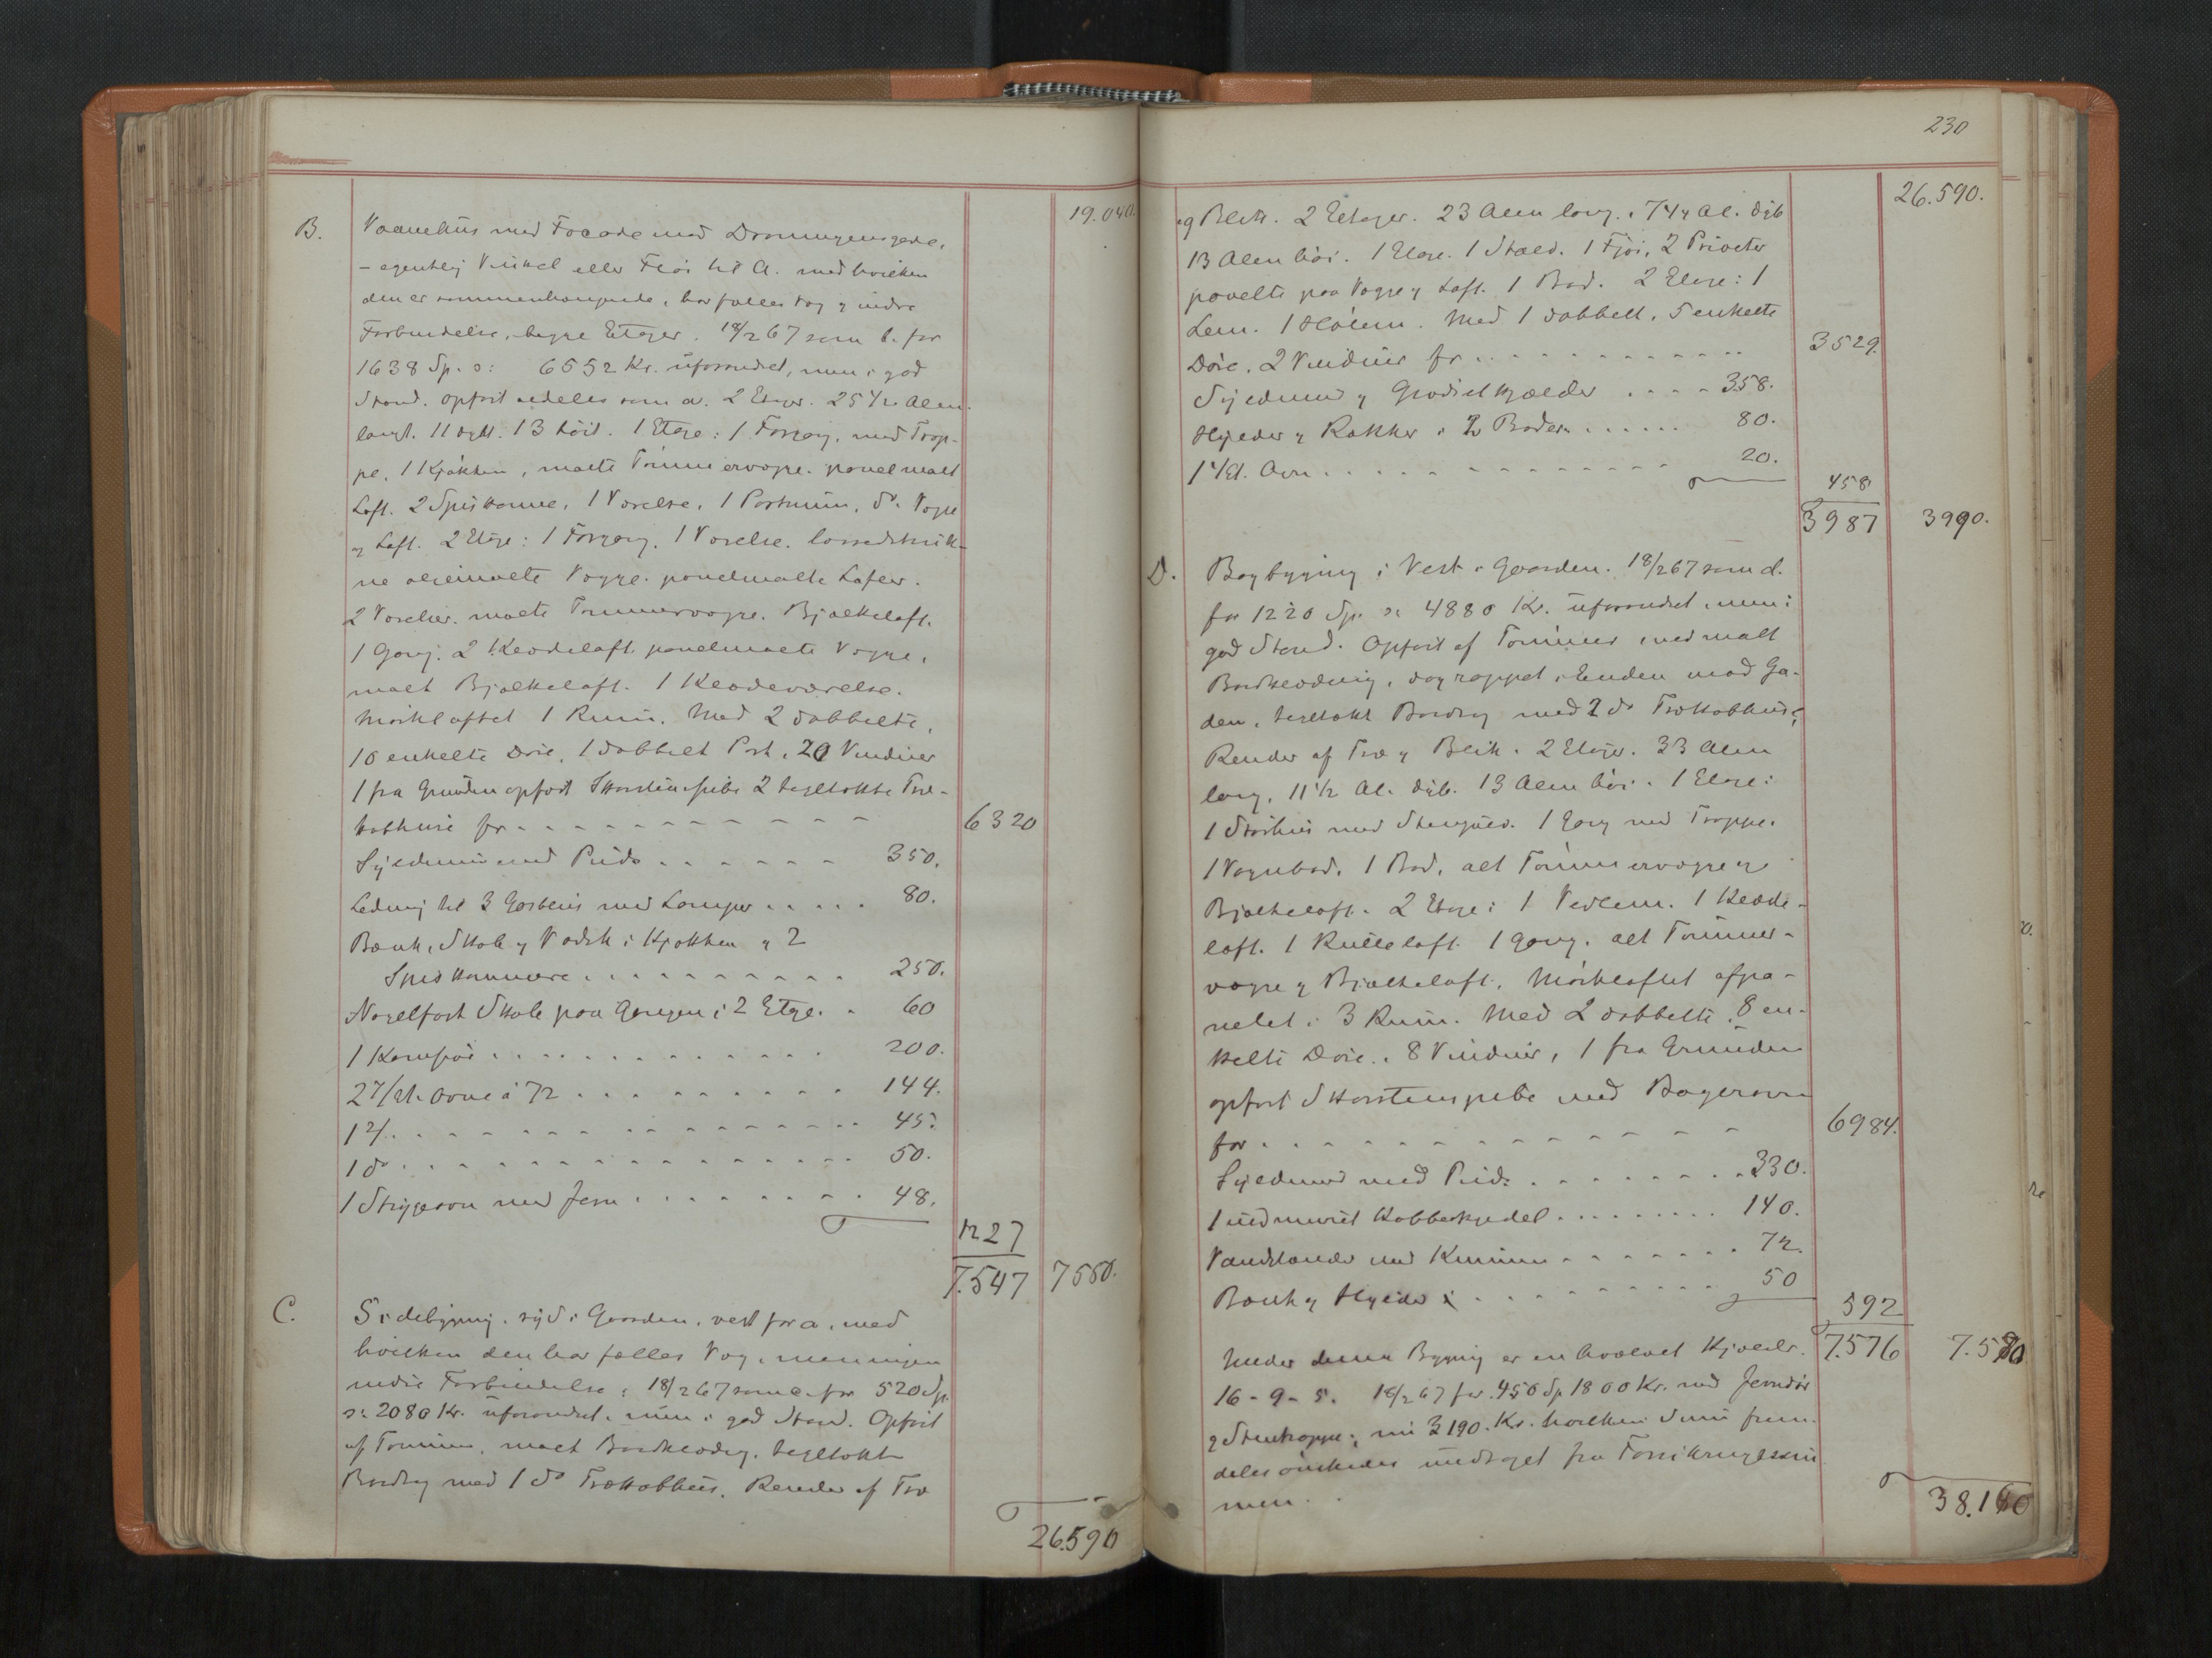 19.040.
B. Vaanehus med Facade mod Dronningensgade,
– egentlig Vinkel eller Fløi til A. med hvilken
den er sammenhængende, har fælles Tag og indre
Forbindelse, begge Etager. 18/2 67 som b. for
1638 Sp. ɔ: 6552 Kr. uforandret, nu i god
Stand. opført ligedeles som a. 2 Etager. 25 1/2 Alen
langt. 11 dybt. 13 høit. 1 Etage: 1 Forgang, med Trap-
pe, 1 Kjøkken, malte Tømmervægge. panelmalt
Loft. 2 Spiskamre, 1 Værelse, 1 Portrum, do Vægge
og Loft. 2 Etage: 1 Forgang. 1 Værelse. lærredstruk-
ne oliemalte Vægge. panelmalte Lofter.
2 Værelser. malte Tømmervægge. Bjælkeloft.
1 Gang. 2 Klædeloft panelmalte Vægge,
malt Bjælkeloft. 1 Klædeværelse.
Mørkloftet 1 Rum. Med 2 dobbelte,
10 enkelte Døre, 1 dobbelt Port, 20 Vinduer
1 fra Grunden opført Skorstenspibe 2 tegltakte Træ-
kobhuse for 6320
Syldmur med Puds 350.
Ledning til 3 Gasblus med Lamper 80.
Bænk, Skab og Vadsk i Kjøkken og 2
Spiskammere 250.
Nagelfast Skab paa Gangen i 2 Etage. 60
1 Komfur 200.
2 4/Et. Ovne á 72 144.
1 2/ 45.
1 do 50.
1 Strygeovn med Jern 48.
1227
7.547 7550.
C. Sidebygning, syd i Gaarden, vest for a, med
hvilken den har fælles Væg, men ingen
indre Forbindelse; 18/2 67 som c. for 520 Sp.
ɔ: 2080 Kr. uforandret, nu i god Stand. Opført
af Tømmer, malt Bordklædng. tegltakt
Bordtag med 1 do Trækobhus. Render af Træ
26.590
230
26.590.
og Blik. 2 Etager. 23 Alen lang. 7 3/4 Al. dyb
13 Alen høi. 1 Etage. 1 Stald. 1 Fjøs, 2 Priveter
panelte paa Vægge og Loft. 1 Bod. 2 Etage: 1
Lem. 1 Hølem. Med 1 dobbelt, 5 enkelte
Døre, 2 Vinduer for 3529.
Syldmur og Grødselkjælder 358.
Hylder og Rækker i 2 Boder 80.
1 1/Et. Ovn 20.
458
3987 3990.
D. Bagbygning i Vest i Gaarden. 18/2 67 som d.
for 1220 Sp. ɔ: 4880 Kr. uforandret, nu i
god Stand. Opført af Tømmer med malt
Bordklædning, og rappet i Enden mod Ga-
den, tegltakt Bordtag med 2 do Trækobhuse,
Render af Træ og Blik. 2 Etager. 33 Alen
lang, 11 1/2 Al. dyb. 13 Alen høi. 1 Etage:
1 Størhus med Stengulv. 1 Gang med Trappe.
1 Vognbod, 1 Bod, alt Tømmervægge og
Bjælkeloft. 2 Etage: 1 Vedlem. 1 Klæde-
loft. 1 Rulleloft. 1 Gang. alt Tømmer-
vægge og Bjælkeloft. Mørkloftet afpa-
nelet i 3 Rum. Med 2 dobbelte, 8 en-
kelte Døre, 8 Vinduer, 1 fra Grunden
opført Skorstenspibe med Bagerovn
for 6984.
Syldmur med Puds 330.
1 indmuret Kobberkjedel 140.
Vandstander med Kummer 72.
Bænk og Hylder 50
592
7.576 7.580
Under denne Bygning er en hvælvet Kjælder.
16 - 9 - 5. 18/2 67 for 450 Sp 1800 Kr. med Jerndør
og Stentrappe; nu 3190. Kr. hvilken Sum frem-
deles ønskedes undtaget fra Forsikringssum
men.
38.160